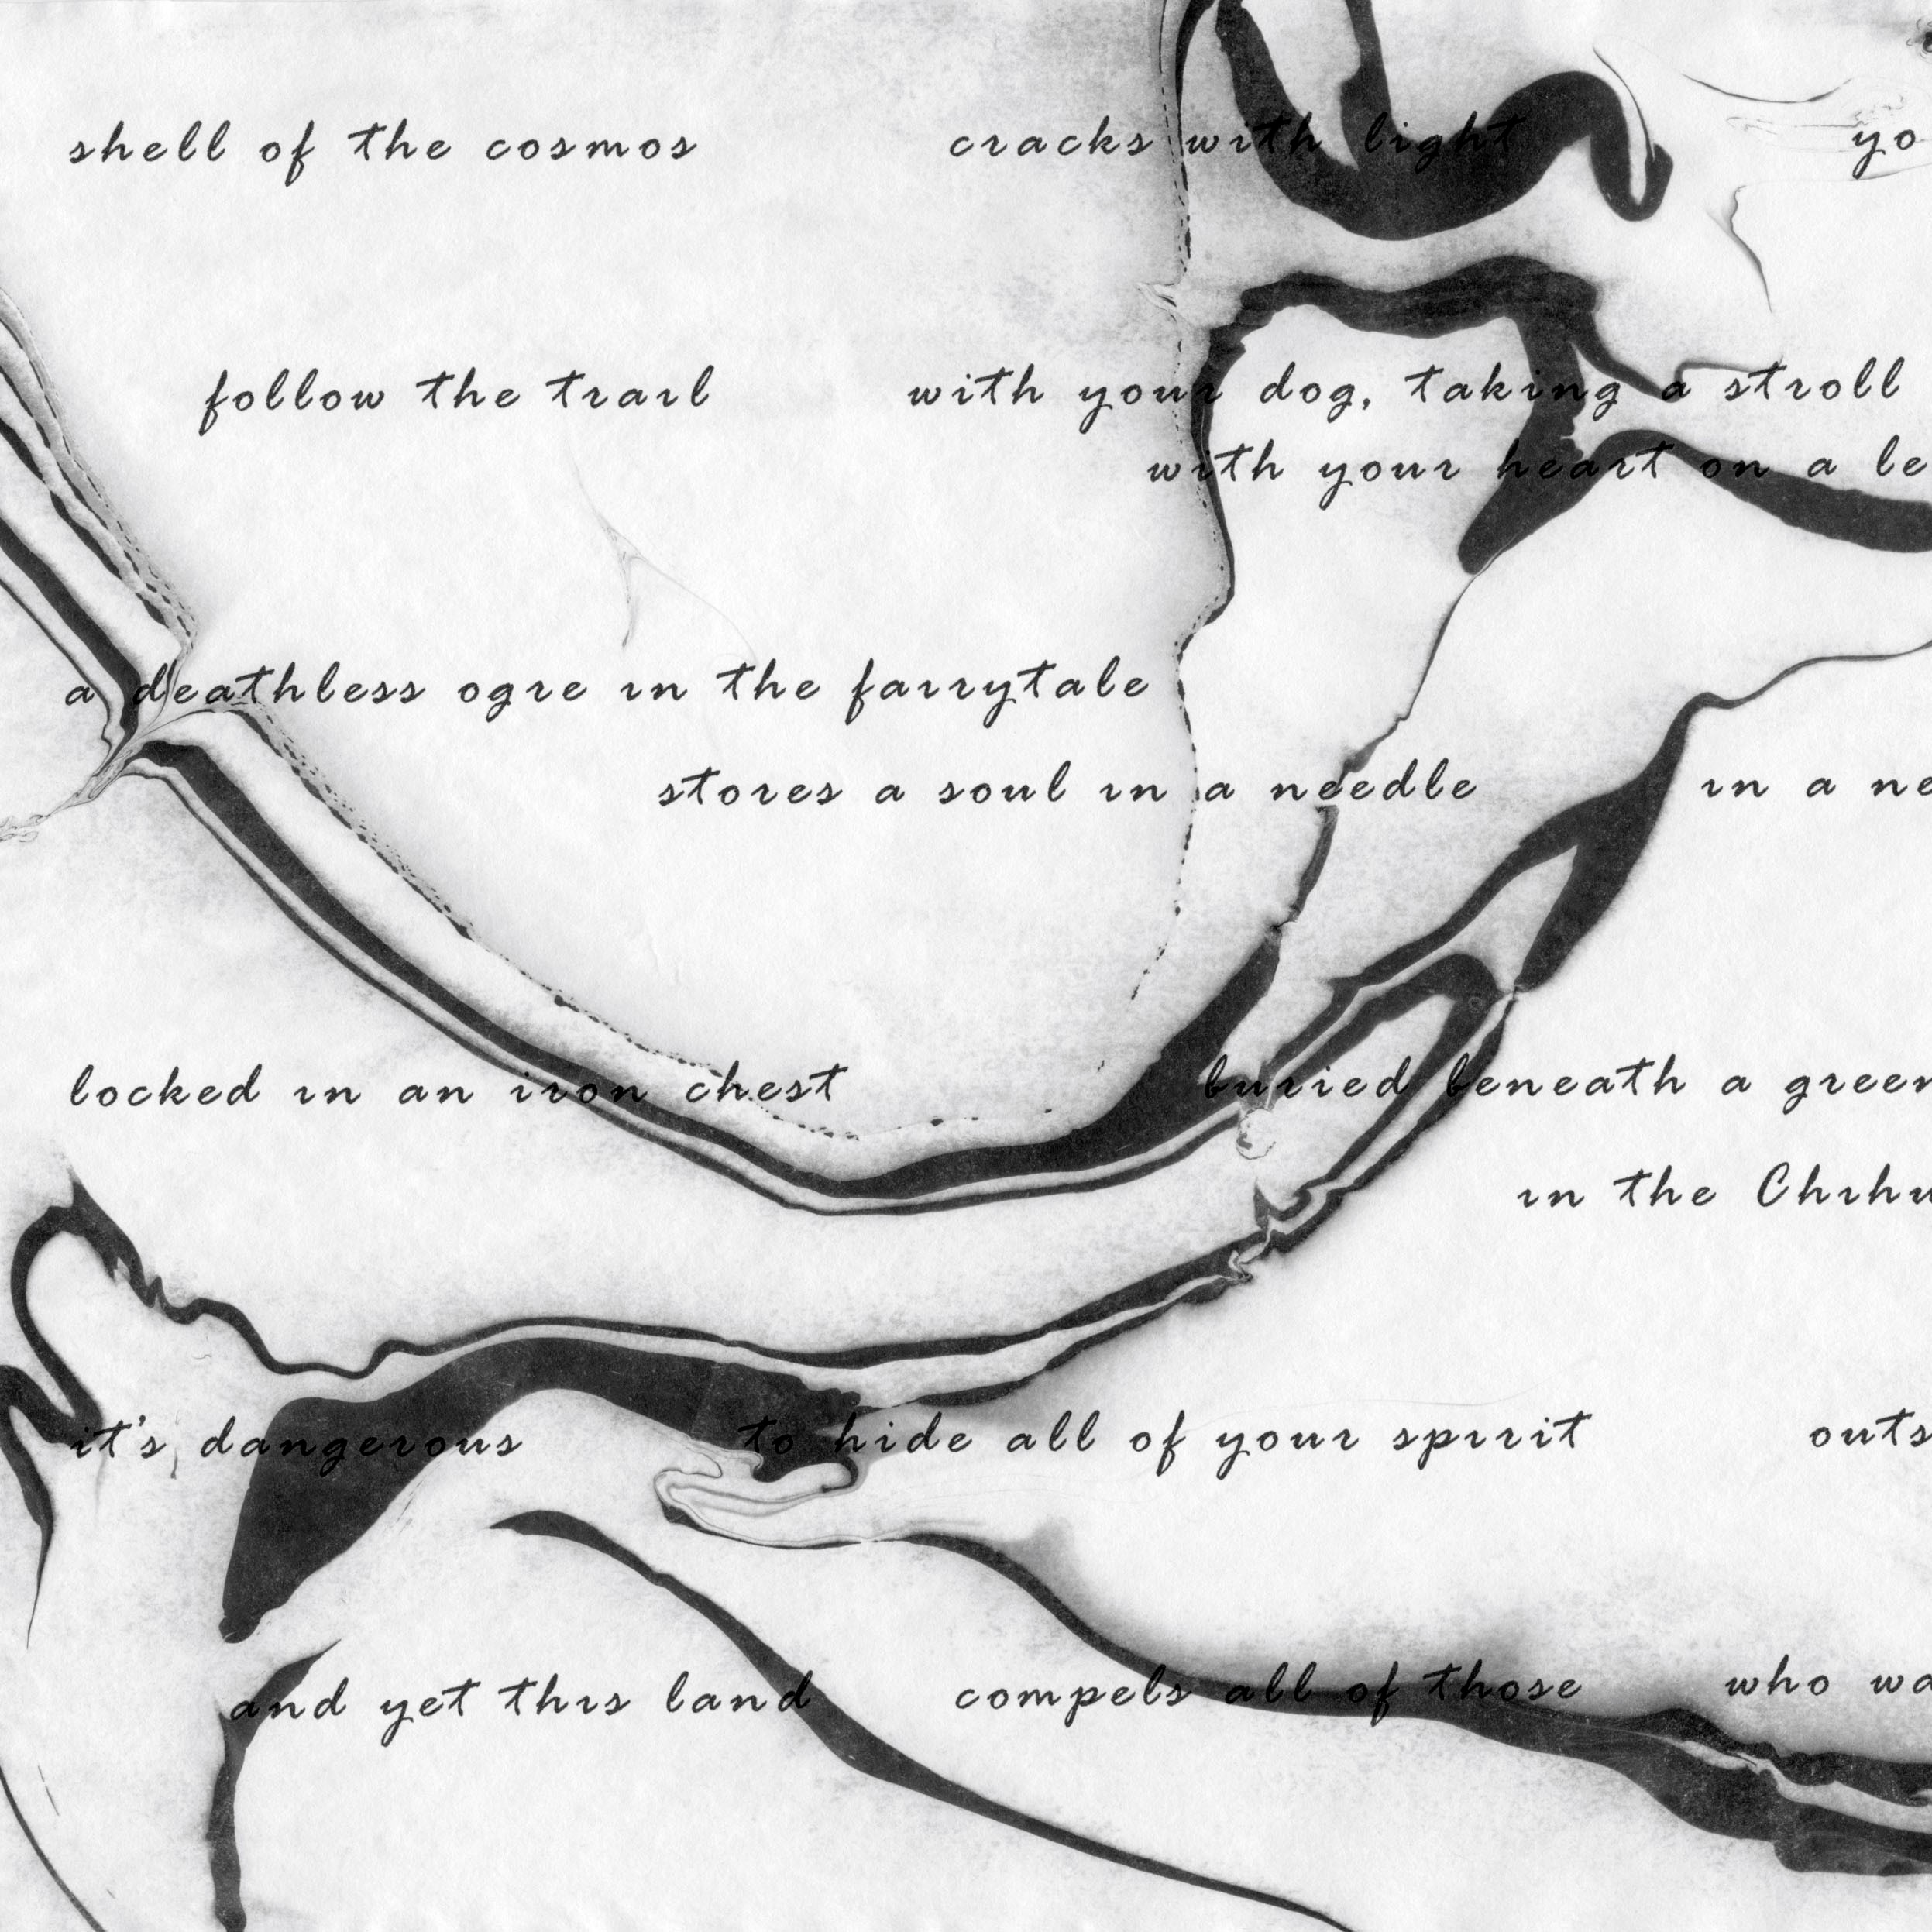 shell of the cosmos cracks with light yo
follow the trail with your dog, taking a stroll
with your heart on a le
a deathless ogre in the fairytale
stores a soul in a needle in a ne
locked in an iron chest buried beneath a green
in the Chihu
it's dangerous to hide all of your spirit outs
and yet this land compels all of those who wa